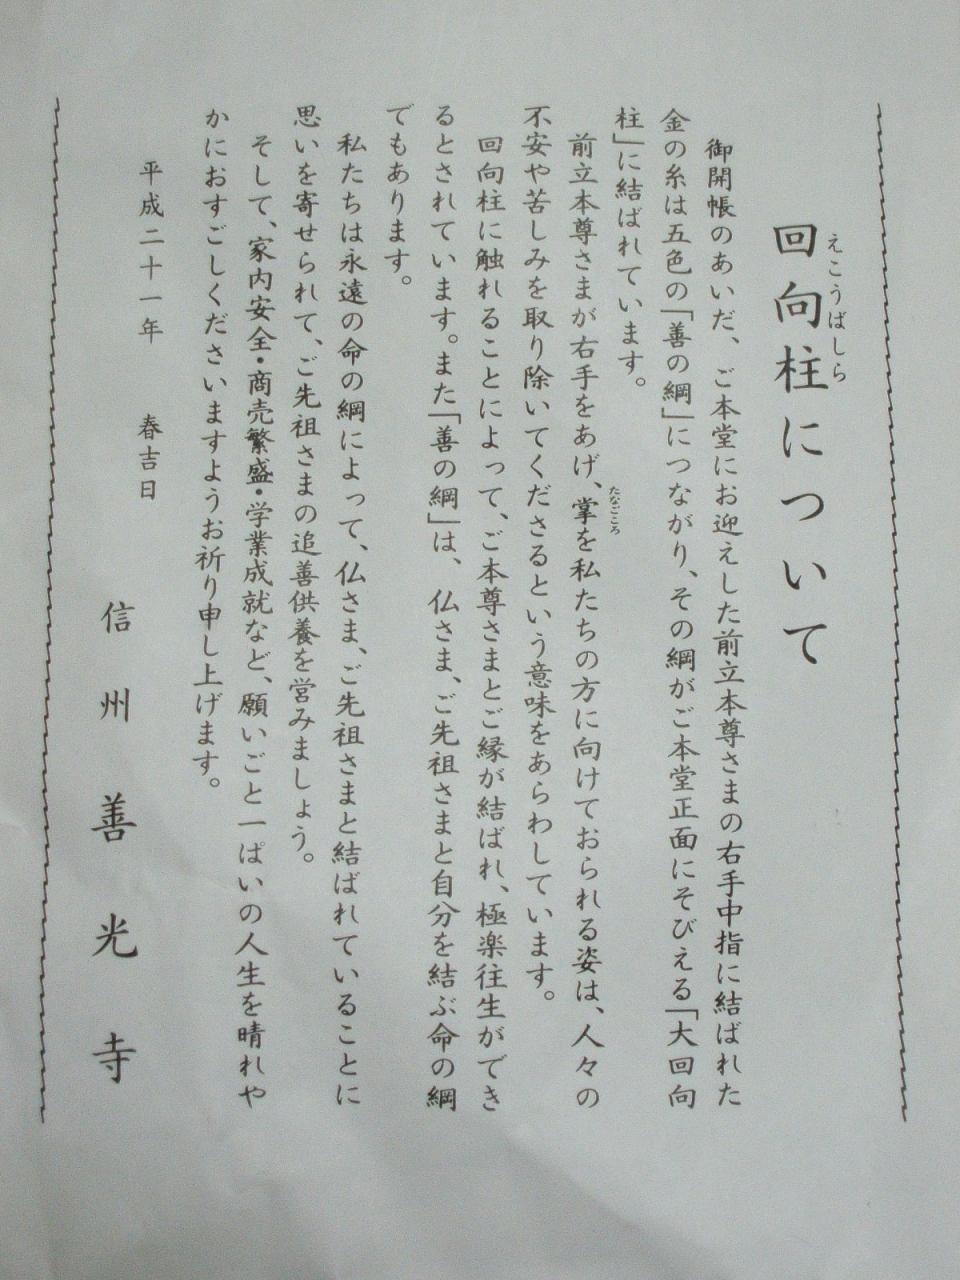 回向柱について
えこうばしら
御開帳のあいだ、ご本堂にお迎えした前立本尊さまの右手中指に結ばれた
金の糸は五色の「善の綱」につながり、その綱がご本堂正面にそびえる「大回向
柱」に結ばれています。
前立本尊さまが右手をあげ、掌を私たちの方に向けておられる姿は、人々の
たなごころ
不安や苦しみを取り除いてくださるという意味をあらわしています。
回向柱に触れることによって、ご本尊さまとご縁が結ばれ、極楽往生ができ
るとされています。また「善の綱」は、仏さま、ご先祖さまと自分を結ぶ命の綱
でもあります。
私たちは永遠の命の綱によって、仏さま、ご先祖さまと結ばれていることに
思いを寄せられて、ご先祖さまの追善供養を営みましょう。
そして、家内安全・商売繁盛・学業成就など、願いごと一ぱいの人生を晴れや
かにおすごしくださいますようお祈り申し上げます。
平成二十一年 春吉日
信州善光寺